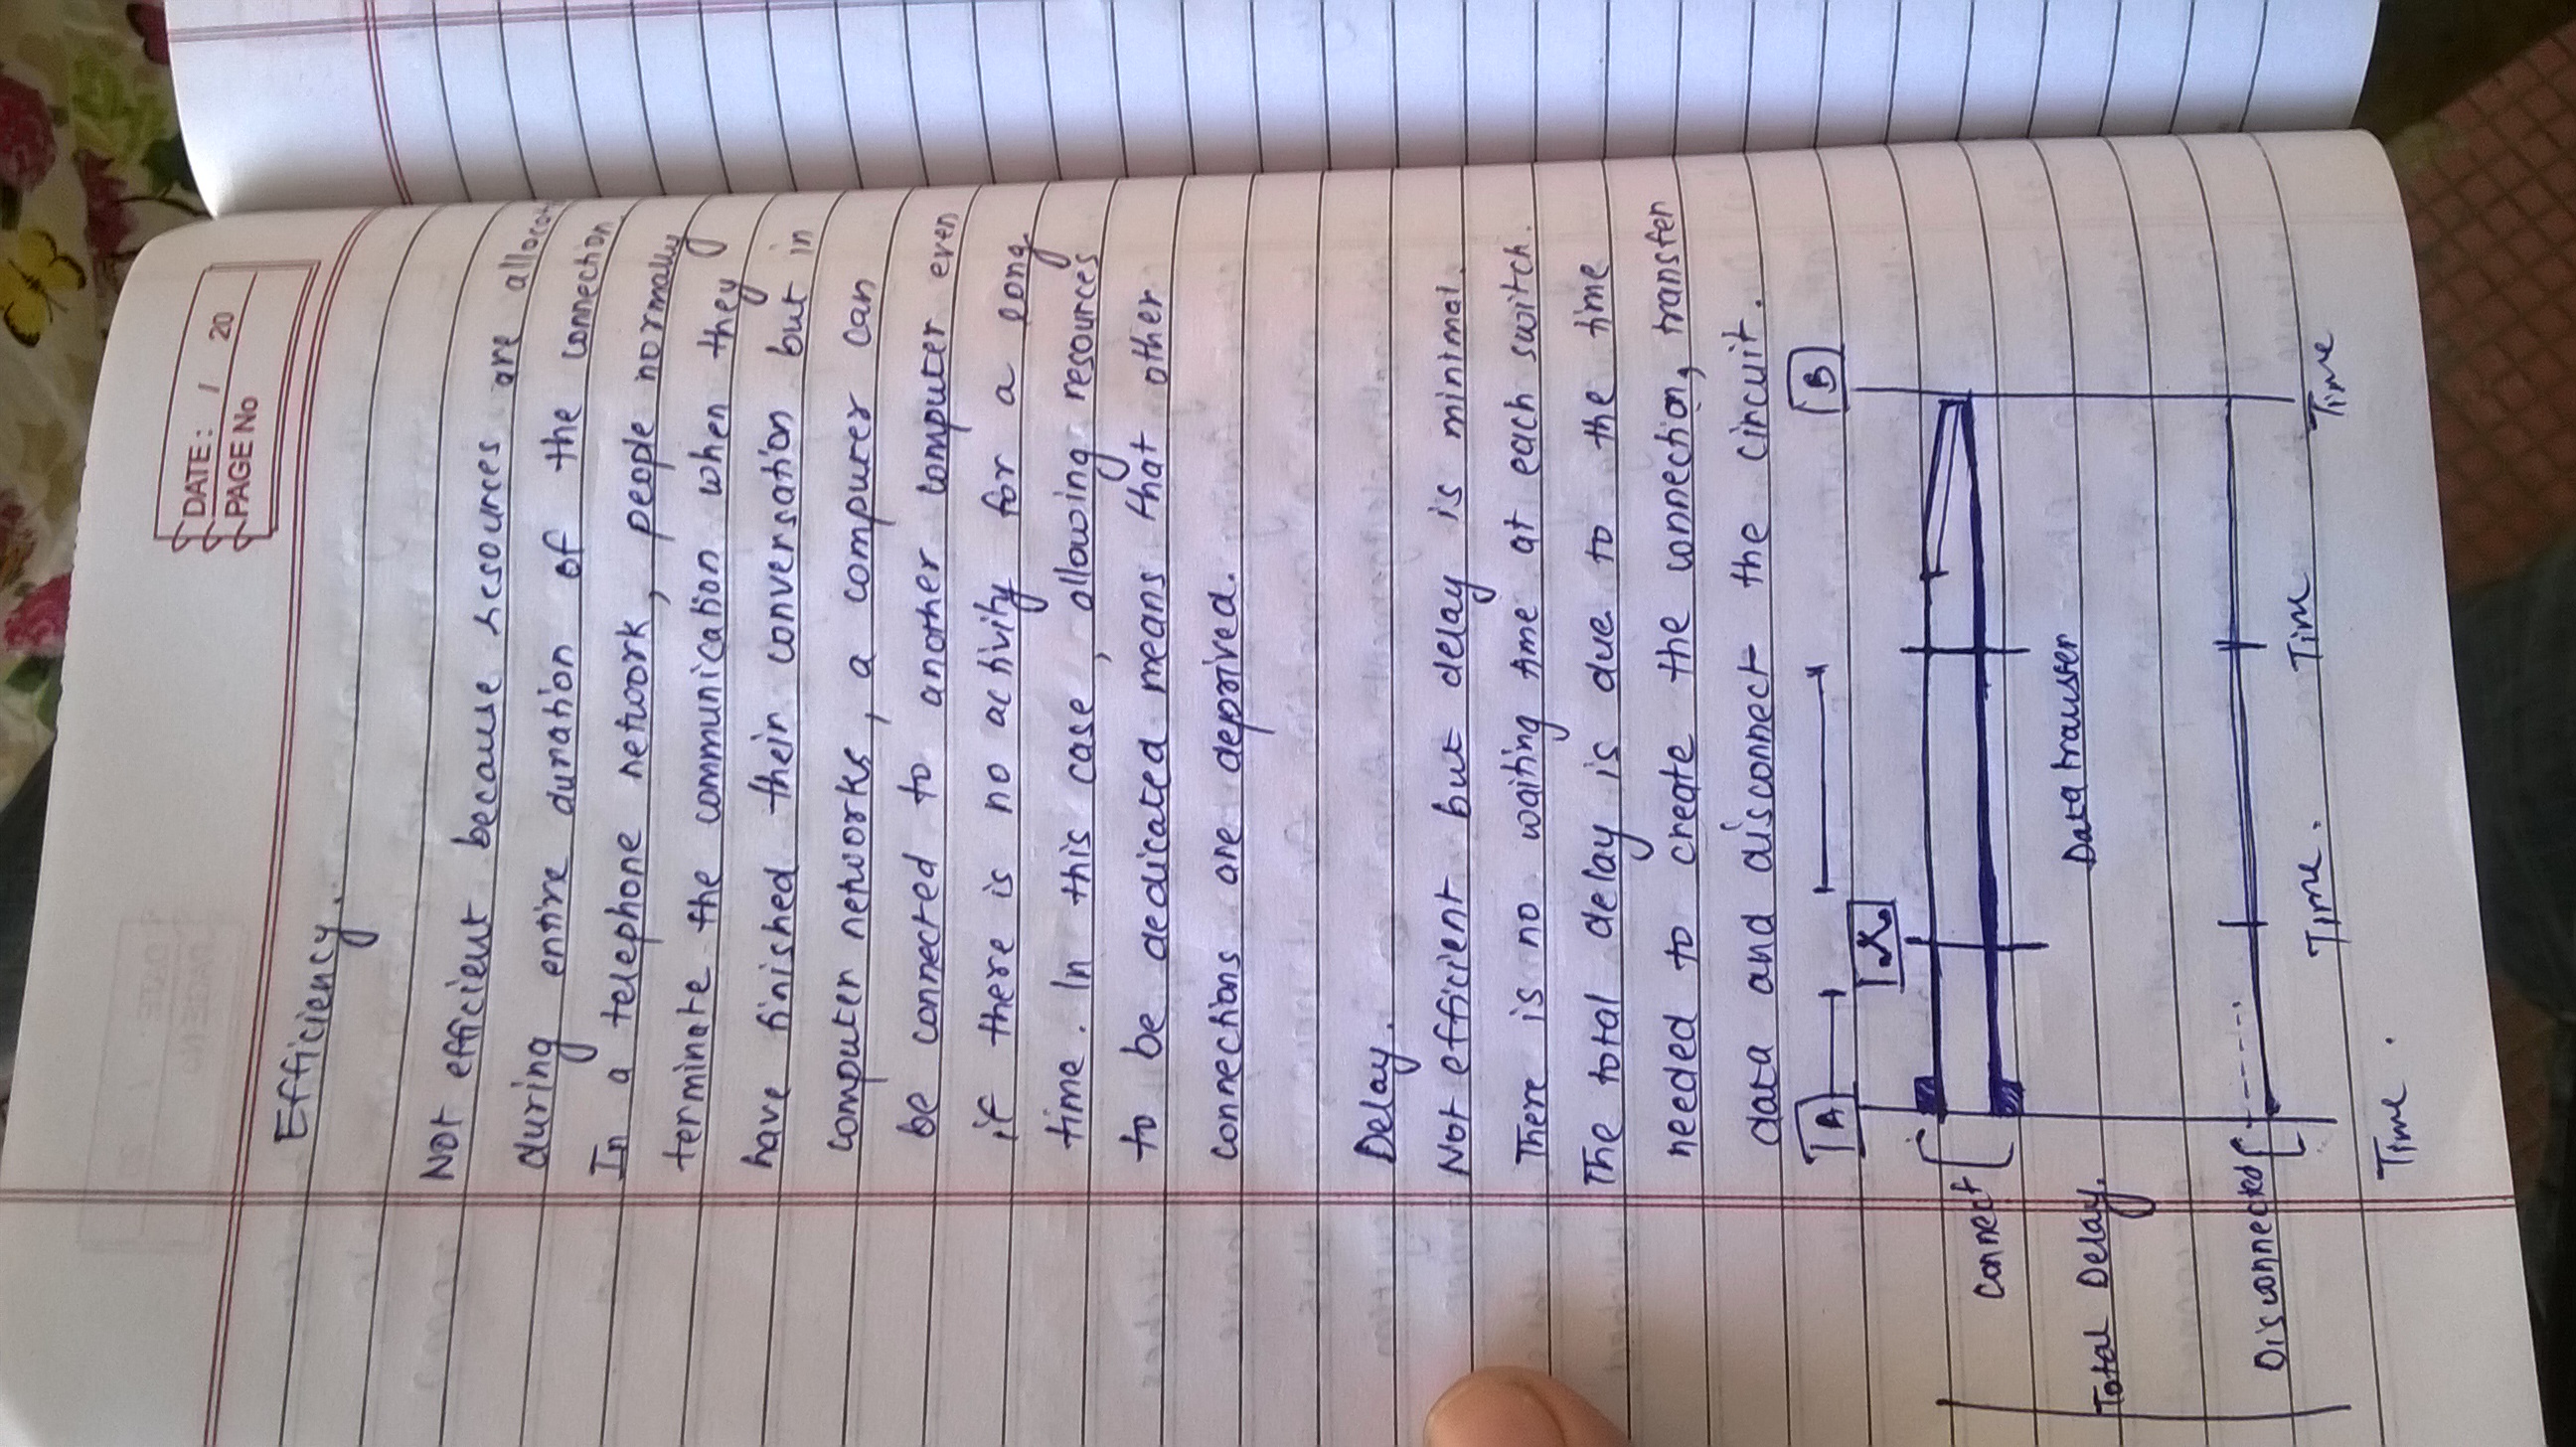 DATE: / 20
PAGE No
Efficiency.
Not efficient because resources are allocat
during entire duration of the connection.
In a telephone network, people normally
terminate the communication when they
have finished their conversation but in
computer networks, a computer can
be connected to another computer even
if there is no activity for a long
time. In this case, allowing resources
to be dedicated means that other
connections are deprived.
Delay.
Not efficient but delay is minimal.
There is no waiting time at each switch.
The total delay is due to the time
needed to create the connection, transfer
data and disconnect the circuit.
A
B
Connect
Data transfer
Total Delay.
Disconnected
Time.
Time
Time
Time.